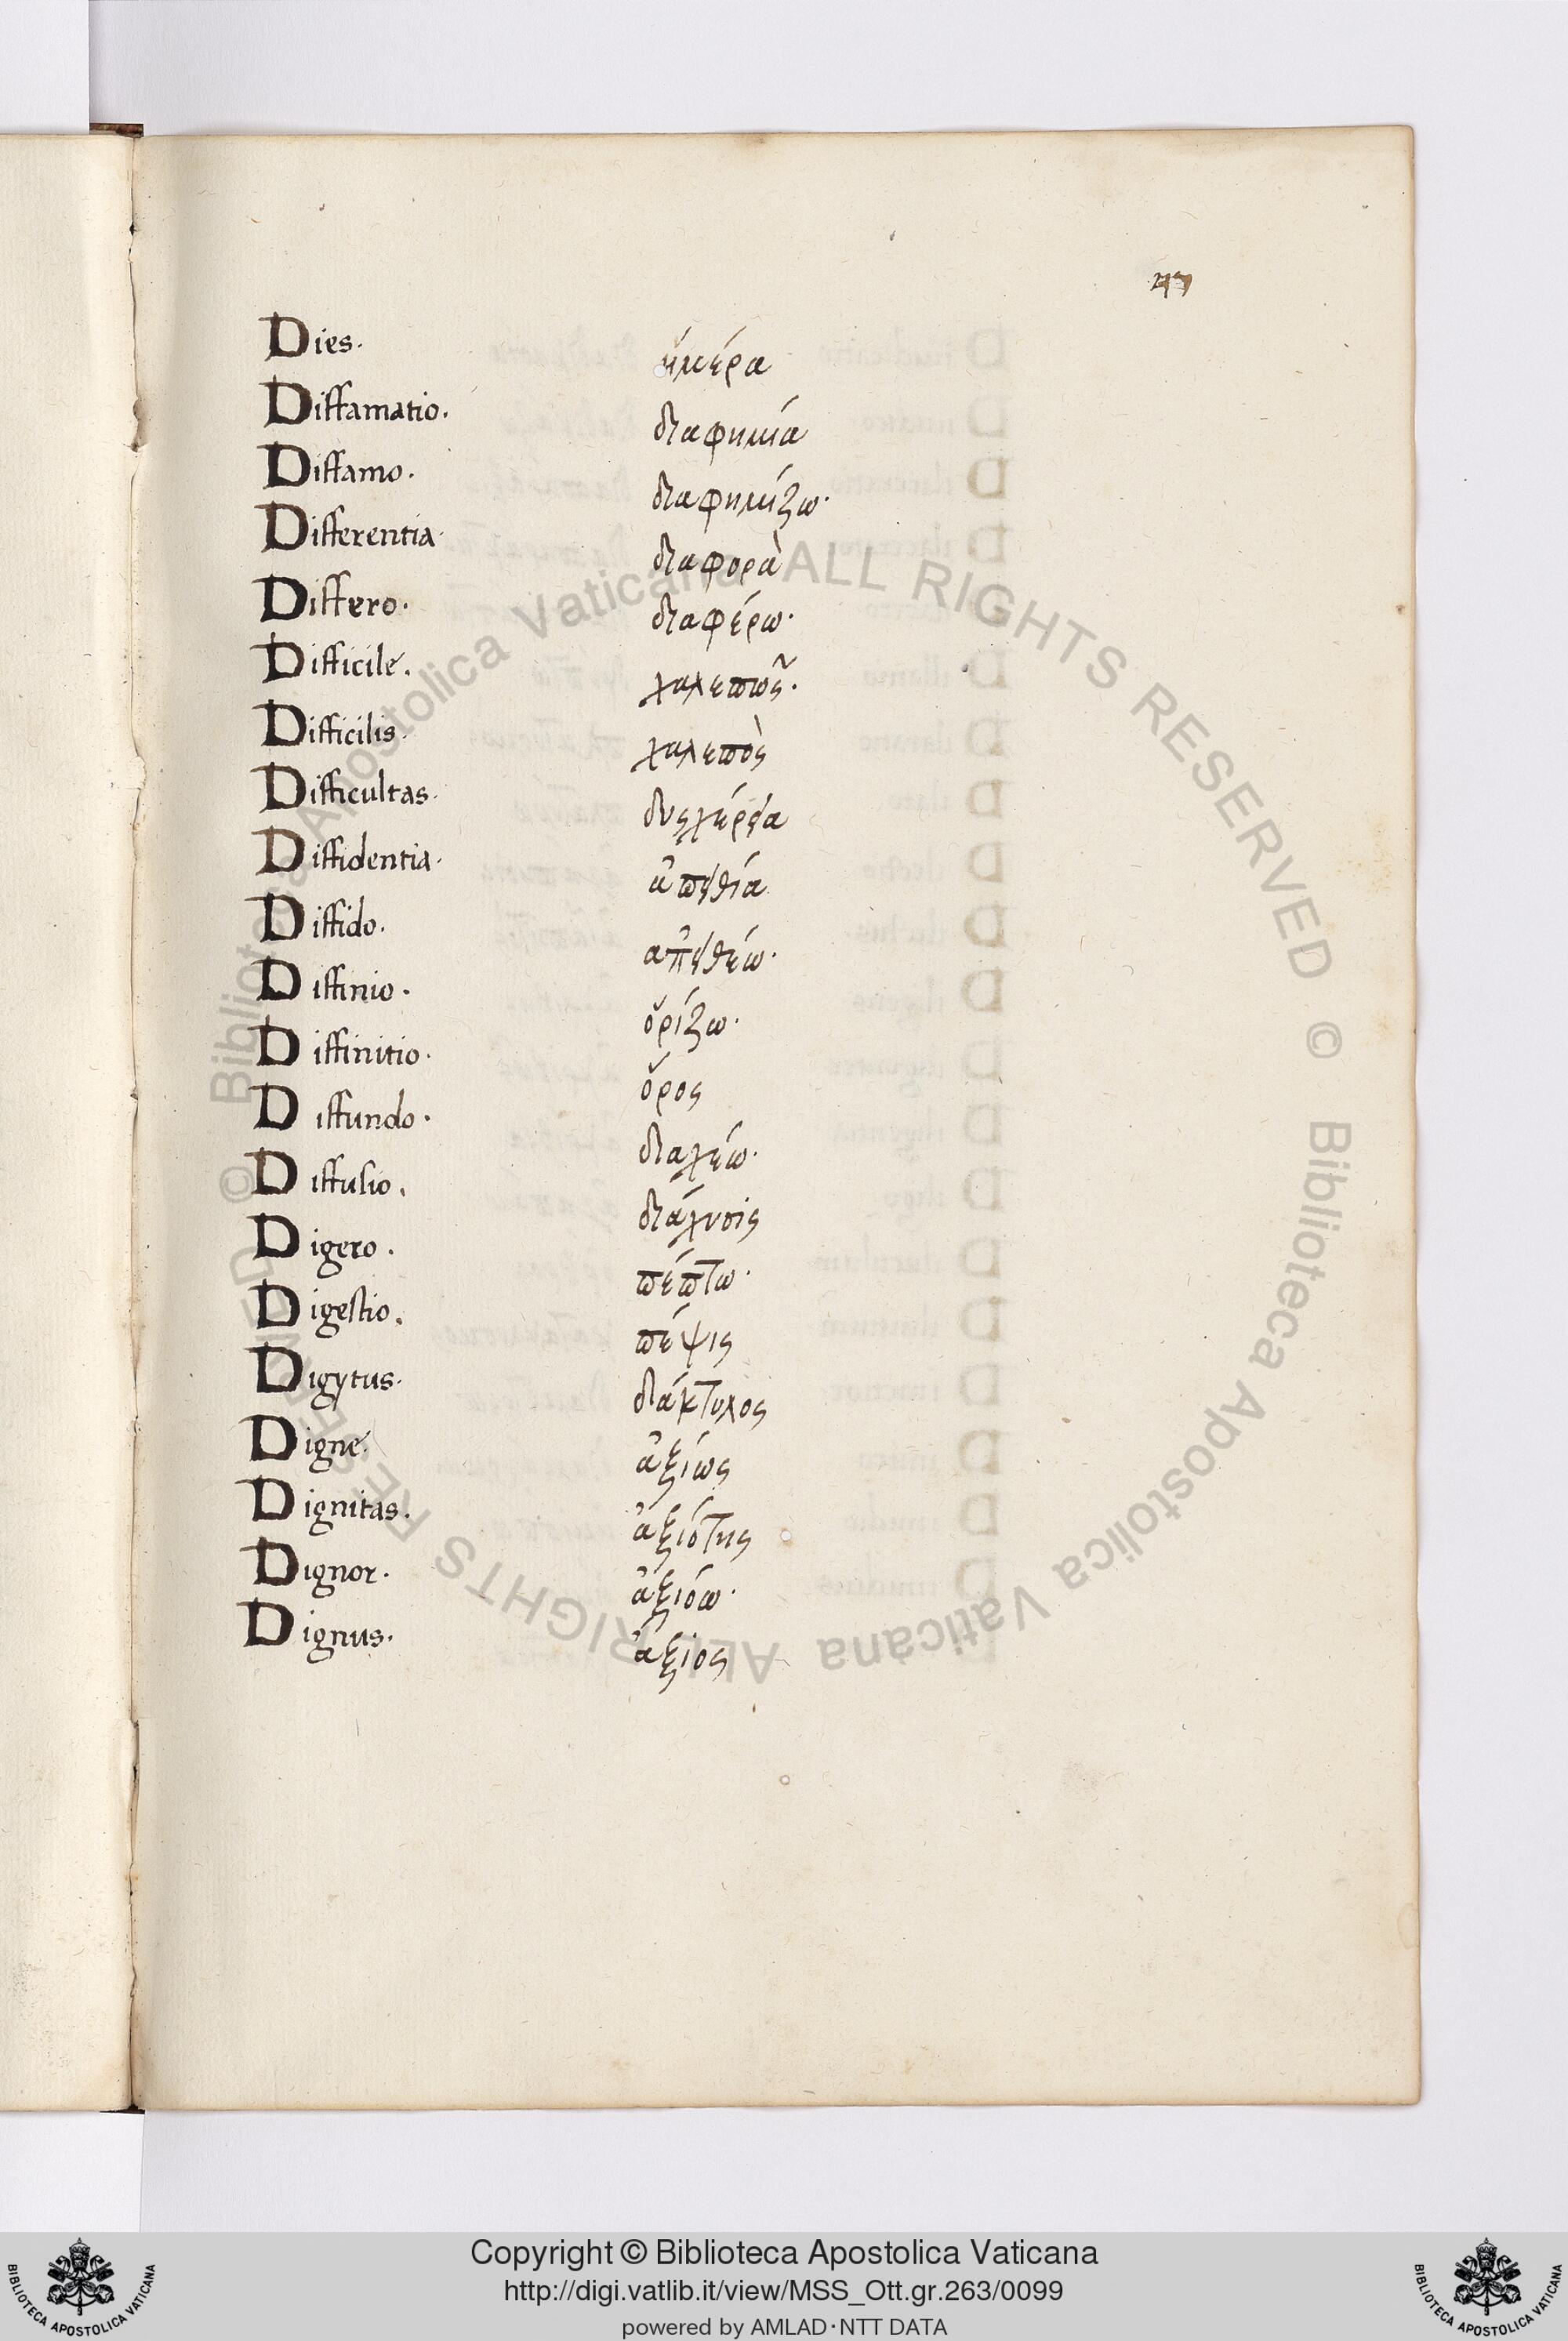 47
Dies. ἡμέρα
Diffamatio. διαφημία
Diffamo. διαφημίζω·
Differentia· διαφορὰ
Differo. διαφέρω·
Difficilé. χαλεπῶς·
Difficilis· χαλεπὸς
Difficultas· δυςχέρεια
Diffidentia· ἀπειθία
Diffido. ἀπειθέω·
Diffinio. ὁρίζω·
Diffinitio. ὅρος
Diffundo. διαχέω·
Diffusio. διάχυσις
Digero. πέπτω·
Digestio. πέψις
Digytus. δάκτυλος
Digné. ἀξίως
Dignitas. ἀξιότης
Dignor. ἀξιόω·
Dignus. ἄξιος
© Biblioteca Apostolica Vaticana ALL RIGHTS RESERVED © Biblioteca Apostolica Vaticana ALL RIGHTS RESERVED
Copyright © Biblioteca Apostolica Vaticana
http://digi.vatlib.it/view/MSS_Ott.gr.263/0099
powered by AMLAD·NTT DATA
BIBLIOTECA APOSTOLICA VATICANA
BIBLIOTECA APOSTOLICA VATICANA